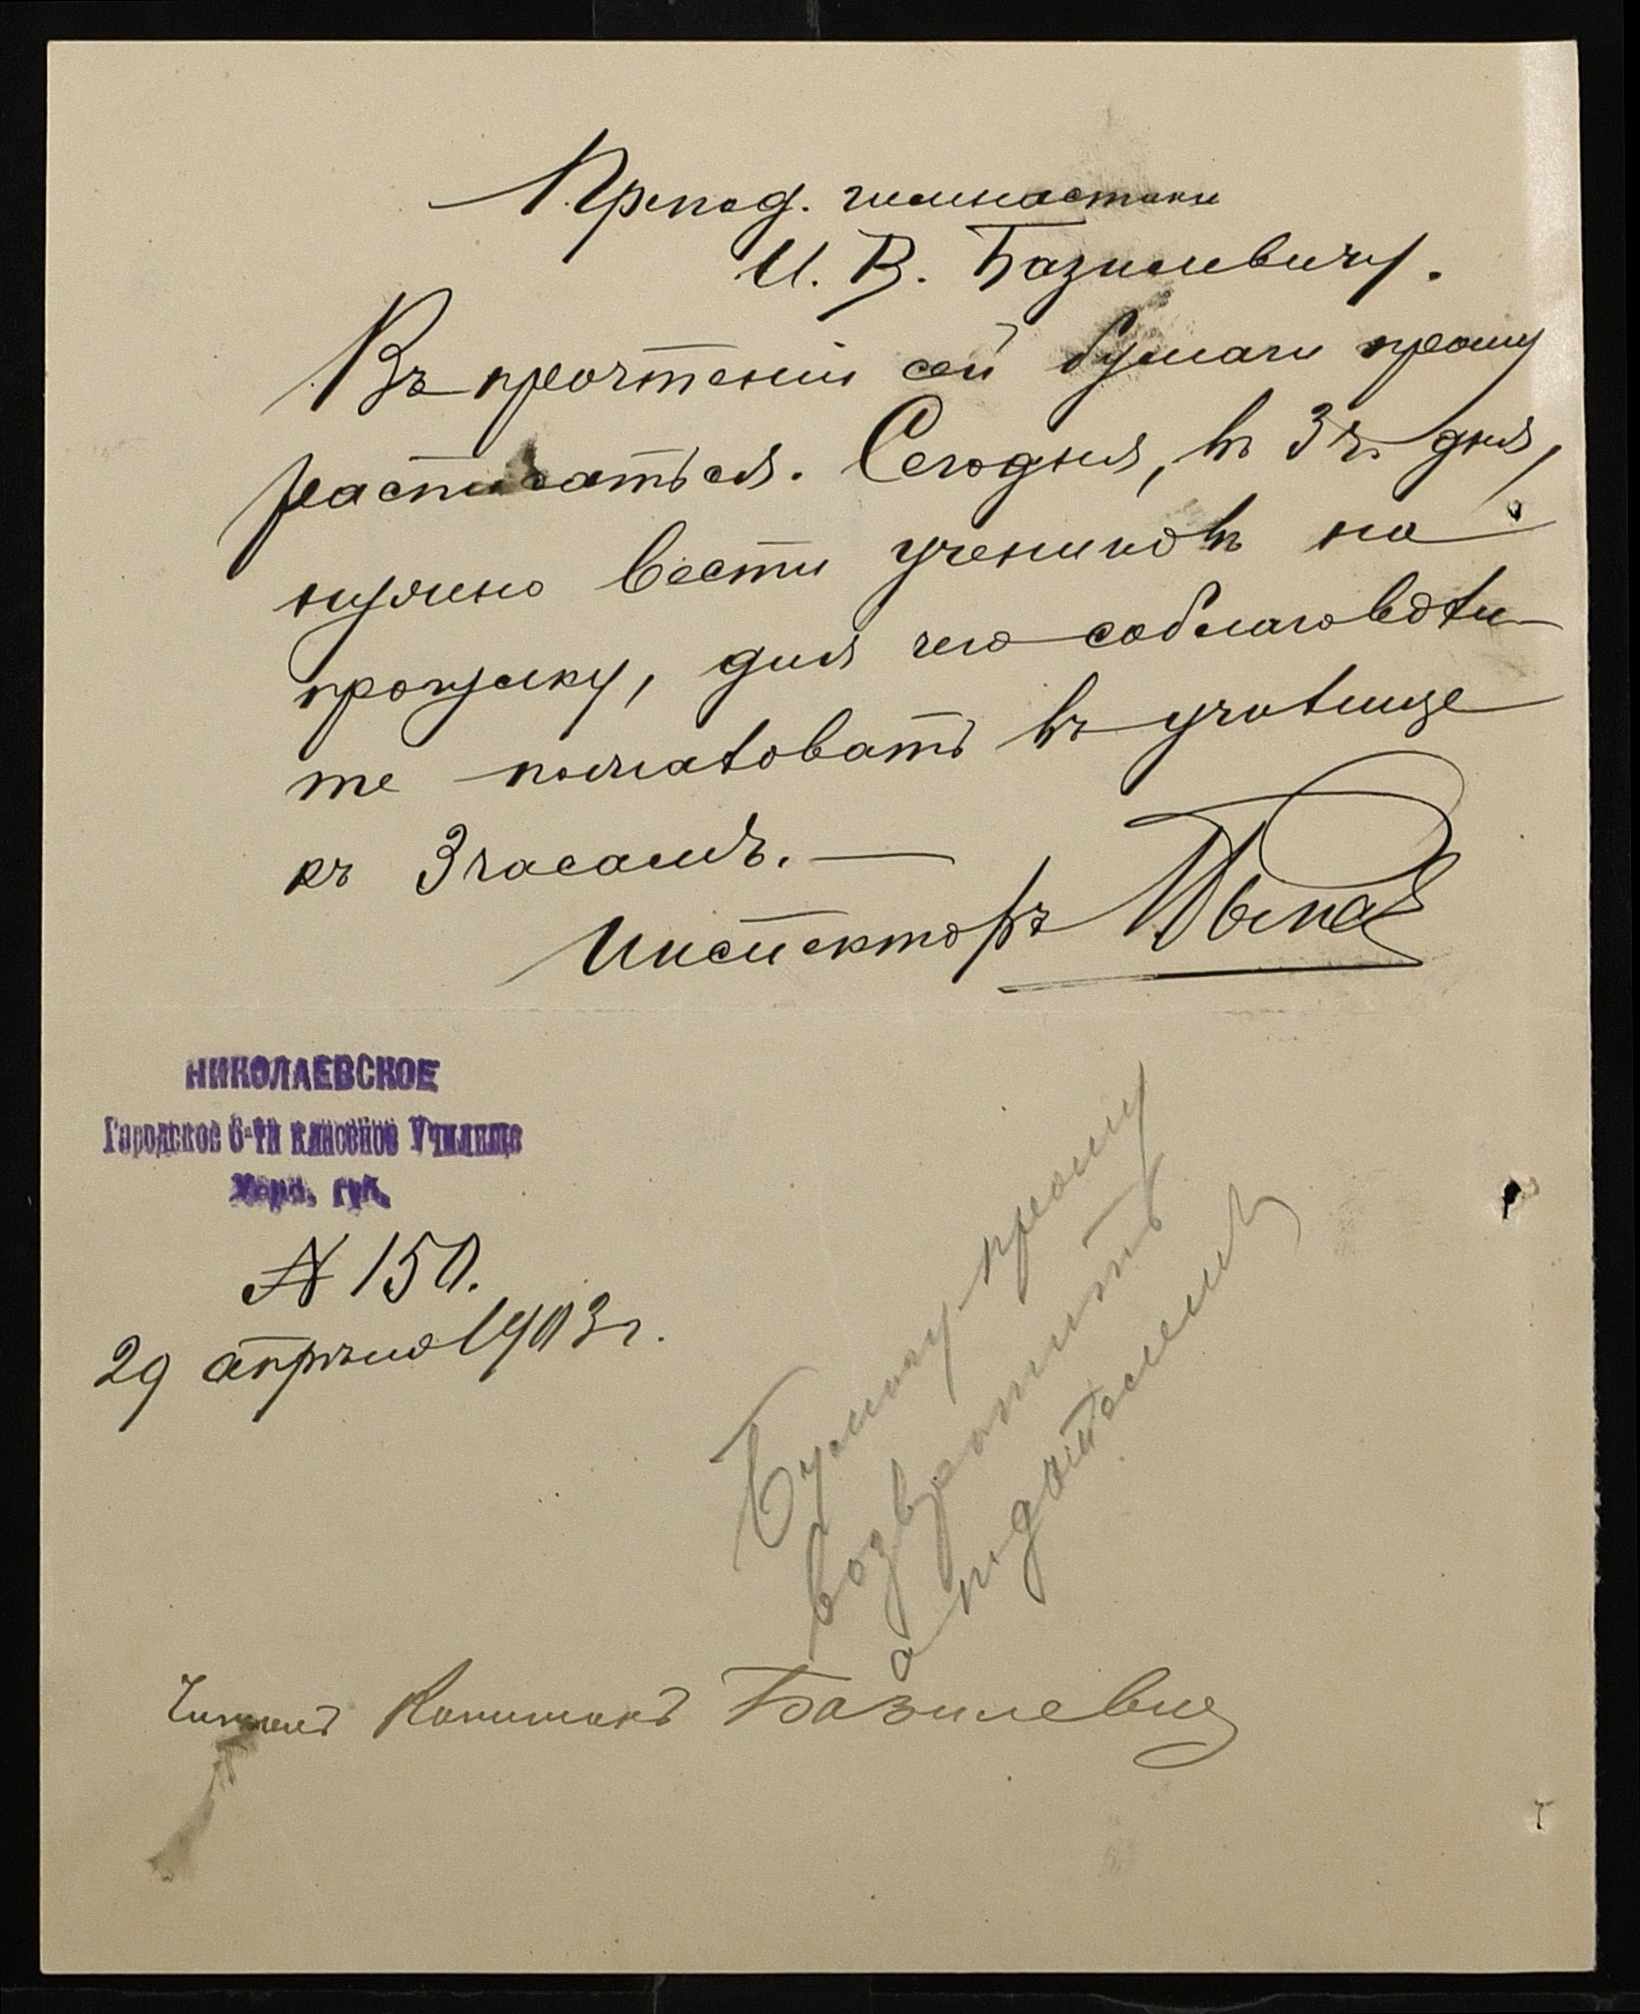 Препод. гимнастики
И. В. Базилевичу.
Въ прочтеніи сей бумаги прошу
расписаться. Сегодня, въ 3 ч. дня,
нужно вести учениковъ на
прогулку, для чего соблаговоли-
те пожаловать въ училище
къ 3 часамъ. —
Инспекторъ
НИКОЛАЕВСКОЕ
Городское 6-ти классное Училище
Херс. губ.
№ 150.
29 апрѣля 1903 г.
Бумагу прошу
возвратить
а
Читалъ Капитанъ Базилевич